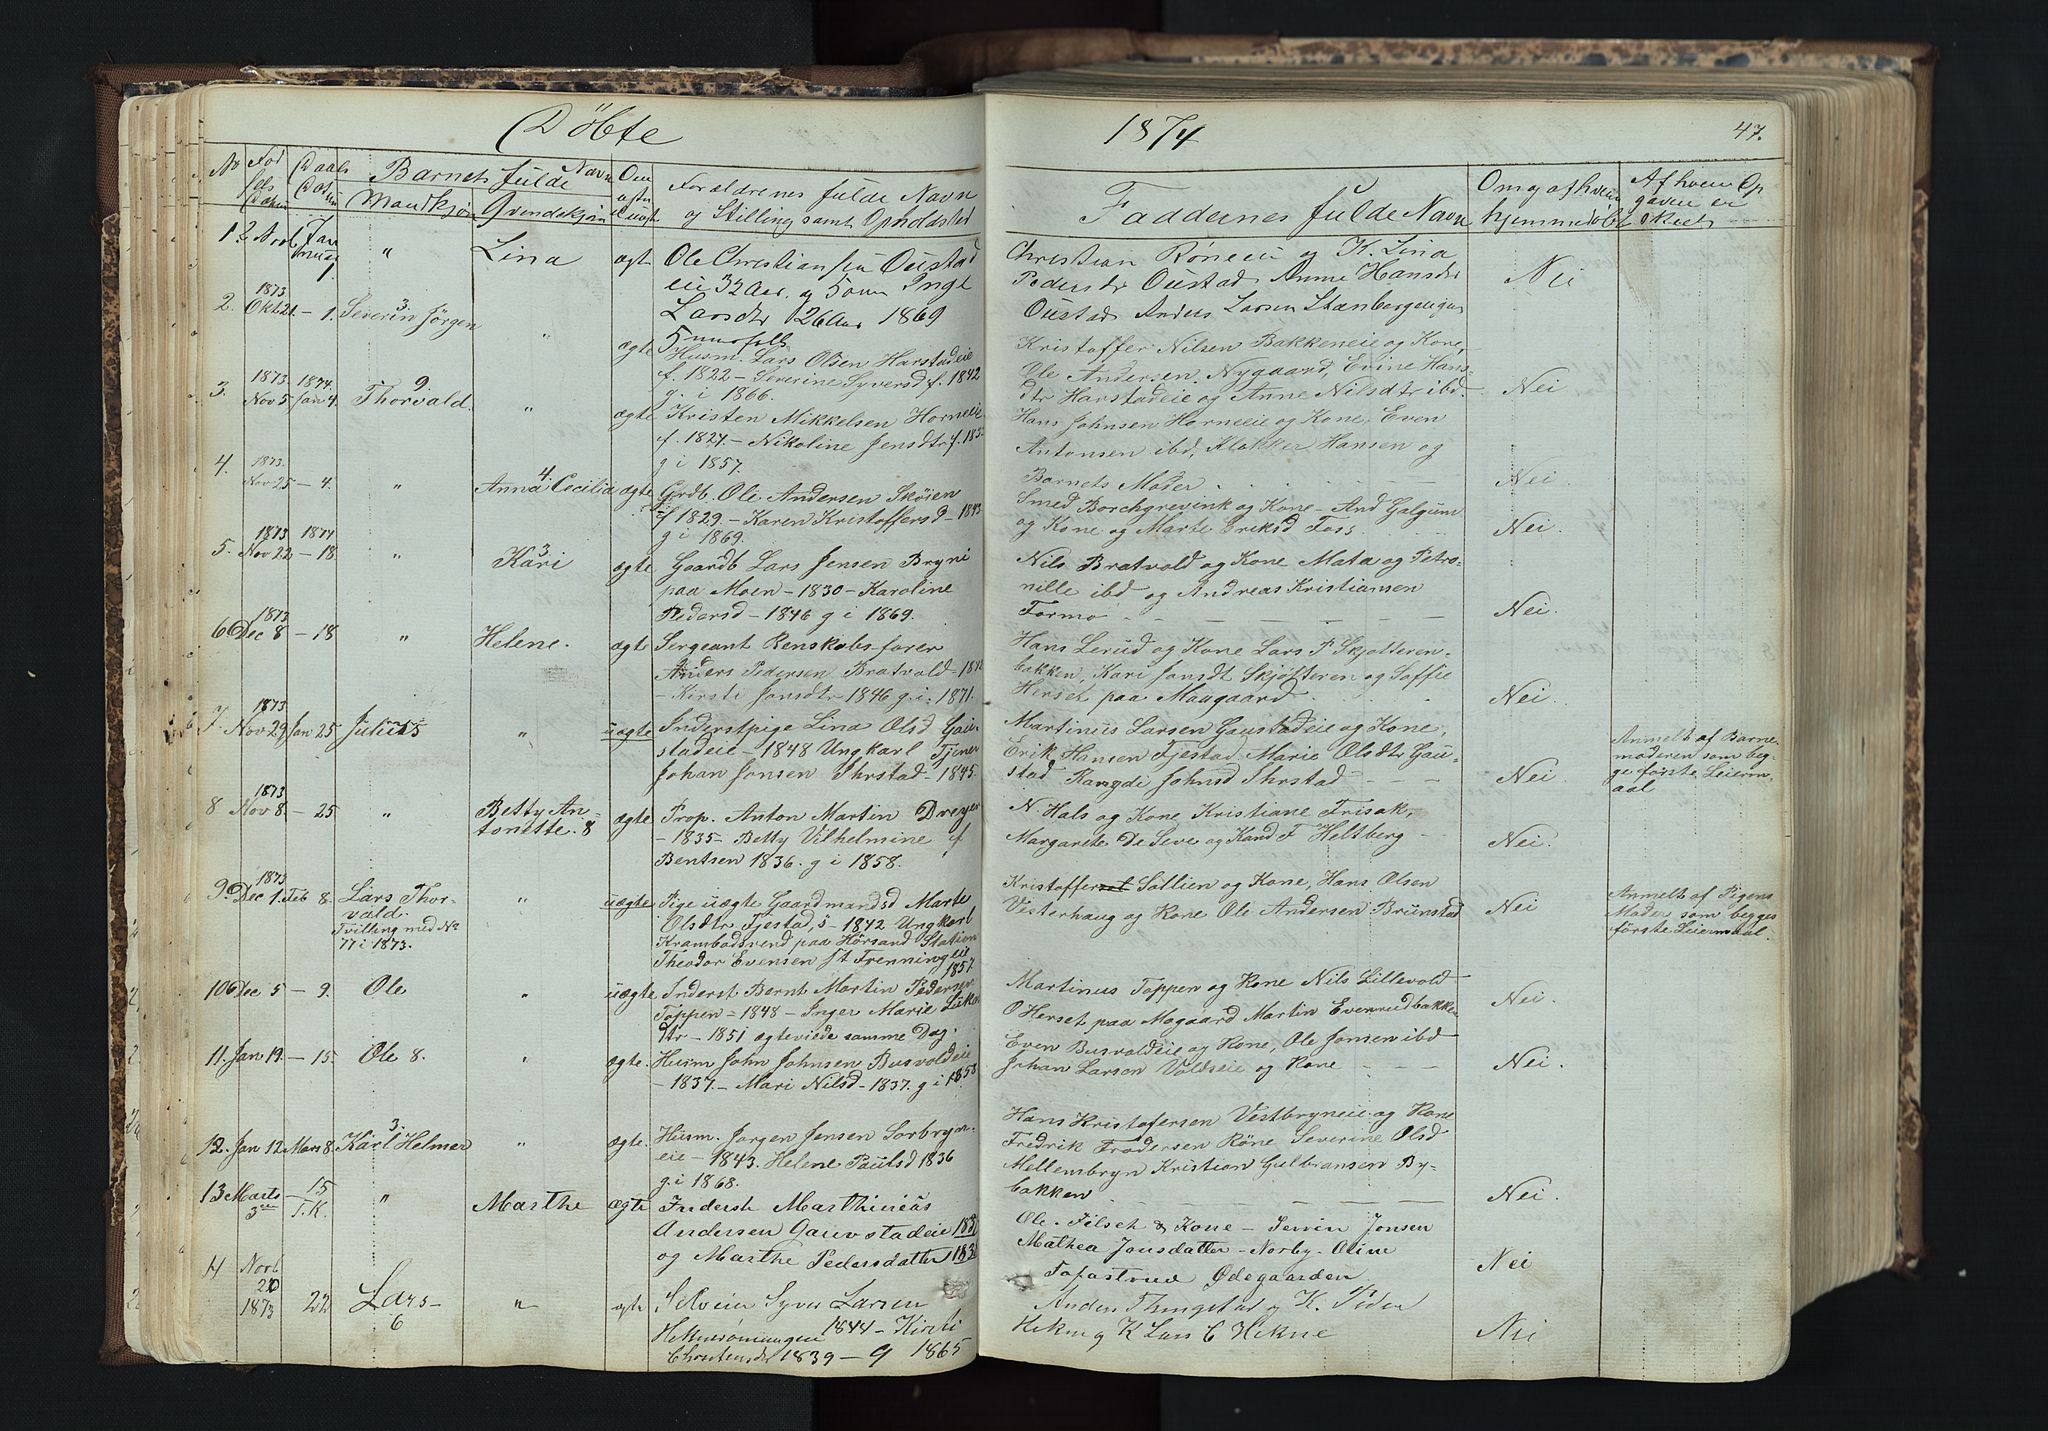 Döbte
1874
47.
No
Fød
sels
Datum
Daabs
Datum
Barnets fulde Navn
Mandkjøn
Qvendekjøn
Om
ægte
el. uægte
Forældrenes fulde Navn
og Stilling samt Opholdsted
Faddernes fulde Navn
Om og af hvem
hjemmedøbt
Af hvem Op
gaven er
skeet
1 2 Novb Januar 1 " Lina ægte
Ole Christiansen Oustad
eie 32 Aar, og Inge
Larsdtr 26 Aar 1869
Christian Røneeie og K. Lina
Pedersdtr Oustad Anne Hansdtr
Oustad Anders Larsen
Nei
2. 1873 Okt 21 – 1. Severin Jörgen 3. " ægte
Husm. Lars Olsen Harstadeie
f. 1822 – Severine Syversd f. 1842
g. i 1866.
Kristoffer Nilsen Bakkeneie og Kone,
Ole Andersen Nygaard, Evine Hans-
dtr Harstadeie og Anne Nilsdtr ibd.
Nei
3. 1873. Nov 5 1874. Jan 4. Thorvald. 9. " ægte
Kristen Mikkelsen Horneeie
f. 1827. – Nikoline Jensdtr f. 183
g i 1857.
Hans Johnsen Horneeie og Kone, Even
Antonsen ibd, Klokker Hansen og
Barnets Moder
Nei.
4. 1873. Nov 25 – 4. " Anna Cecilia 4. ægte
Grdb. Ole Andersen Skøien
f 1829 – Karen Kristoffersd – 1843
g i 1869.
Smed Borchgrevink og Kone – And Galgum
og Kone og Marte Eriksd Foss
Nei.
5. 1873 Nov 22 1874 – 18. " Kari 3. ægte
Gaardb Lars Jensen Bryni
paa Moen – 1830 – Karoline
Pedersd – 1846 g i 1869.
Nils Bratvold og Kone Mata og Petro-
nille ibd og Andreas Kristiansen
Formo
Nei.
6 1873 Dec 8 – 18 " Helene. ægte
Sergeant Renskabsforer
Anders Pedersen Bratvold – 184
– Kirsti Jonsdtr – 1846 g. i. 1871.
Hans Lerud og Kone Lars P Skjøtteren-
bakken, Kari Jonsdt Skjøtteren og Soffie
Herset paa Maagaard
Nei.
7. 1873 Nov 29 Jan 25 Julius 5 " uægte
Inderstpige Lina Olsd Gau-
stadeie – 1848 Ungkarl Tjener
Johan Jonsen Ihrstad – 1845.
Martinus Larsen Gaustadeie og Kone,
Erik Hansen Fjestad, Marie Olsdtr Gau-
stad Rangdi Johnsd Ihrstad
Nei.
Anmeldt af Barne-
moderen som beg-
ge første Leierm-
aal
8 1873 Nov 8. – 25 " Betty An-
tonette. 8 ægte
Prop. Anton Martin Dreyer
– 1835 – Betty Vilhelmine f
Bentsen 1836. g i 1858.
N. Hals og Kone Kristiane Frisak,
Margarete De Seve og Kand F Heltberg
Nei.
9. 1873 Dec 1. Feb 8. Lars Thor-
vald.
Tvilling med No
77 i 1873. " uægte
Pige uægte Gaardmandsd Marte
Olsdtr Fjestad, 5 – 1842 Ungkarl
Krambodsvend paa Hörsand Station
Theodor Evensen st Frenningeie
1857
Kristoffer Sollien og Kone, Hans Olsen
Vesterhaug og Kone Ole Andersen Brunstad
Nei
Anmeldt af Pigens
Moder, som begges
første Leiermaal.
10 Dec 5 – 9. Ole " uægte
Inderst Bernt Martin Pedersen
Toppen – 1848 – Inger Marie Luka
dtr – 1851 ægteviede samme Dag.
Martinus Toppen og Kone Nils Lillevold
O Herset paa Mogaard Martin Evenrudbakken
Nei.
11. Jan 19. – 15. Ole 8. " ægte.
Husm John Johnsen Busvoldeie
– 1837. – Mari Nilsd – 1837. g i 1858
Even Busvoldeie og Kone, Ole Jonsen ibd
Johan Larsen Voldseie og Kone
Nei.
12. Jan 12 Mars 8. Karl Helmer 3. " ægte.
Husm. Jorgen Jensen Sorbryn-
eie – 1843. Helene Paulsd 1836
g. i 1868.
Hans Kristofersen Vestbryneie og Kone
Fredrik Frodersen Röne, Severine Olsd
Mellembryn Kristian Gulbransen By-
bakken
Nei.
13 Marts 3 – 15 T.K. " Marthe ægte
Inderst Marthineus
Andersen Gauvstadeie 183
og Marthe Pedersdatter 183
Ole Filset & Kone – Jonsen
Mathea Jonsdatter – Norby –
Ødegaarden
Nei
14 Novb 20 1873 22 Lars 6 " ægte
Selveier Syver Larsen
1844 – Kirsti
1839 – g 1865
Anders Thingstad og K. Peder
Hekne og K Lars C Hekne
Nei